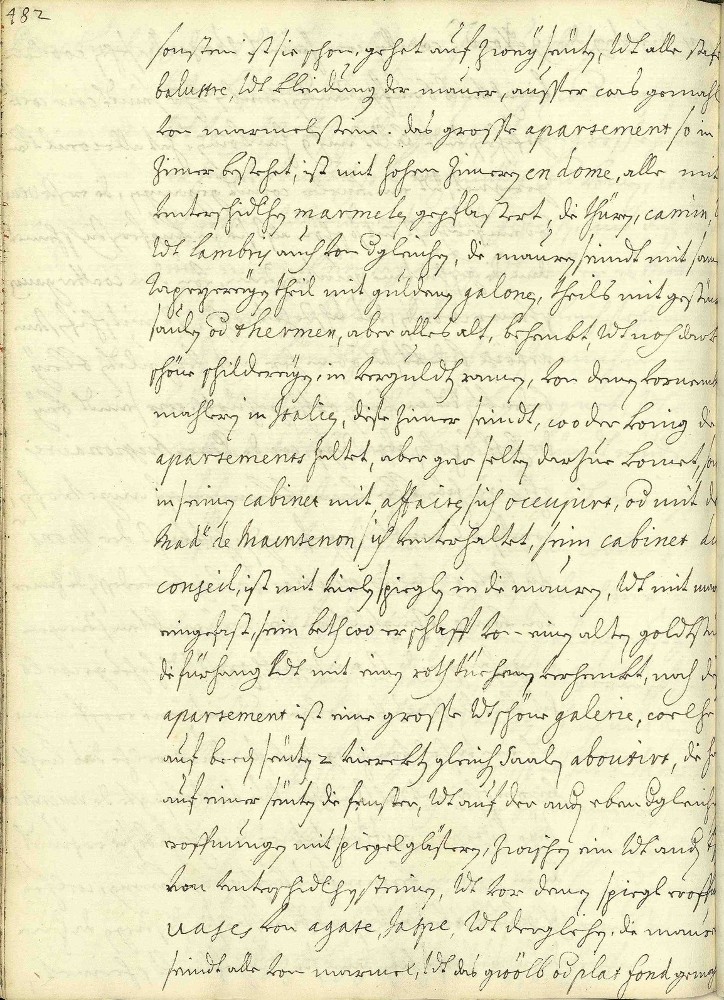 482
sonsten ist sie schon, gehet auf zweÿ seüten, Vdt alle staf
balustre, Vdt kleidung der mauer, ausser was gemahl
von marmelstein. das grosse apartement so in
Zimer bestehet, ist mit hohen Zimeren en dome, alle mit
unterschidlhen marmelen gepflastert, die thüren, camin,
Vdt lambris auch von dgleichen, die mauren seindt mit sam
tapezereÿen theil mit gulden galonen, theils mit
saulen od thermen, aber alles alt, behenkt, Vdt noch
schöne schildereÿen, in verguldten ramen, von denen vornemb
mahlern in Italien, diese zimer seindt, wo der König die
apartements haltet, aber gar selten darzue komet,
in seinen cabinet mit affaire sich occupirt, od mit de
Mad.e de Maintenon sich unterhaltet, sein cabinet du
conseil, ist mit vielen spieglen in die mauren, Vdt mit
eingefast, sein beth wo er schlafft von einen alten goldtst
die fürhang Vdt mit einen roth verhenkt, nach die
apartement ist eine grosse Vdt schöne galerie, welche
auf beeden seüten 2 viereckt gleich Saalen aboutirt, die
auf einer seüten die fenster, Vdt auf der anden eben dgleich
eroffnungen mit spiegelglässern, zwischen ein Vdt anden
von unterschidlhen steinen, Vdt vor denen spiegl eroff
vases von agate, Jaspe, Vdt derglehen. die mauer
seindt alle von marmel, Vdt das gwölb od plat fond gemah